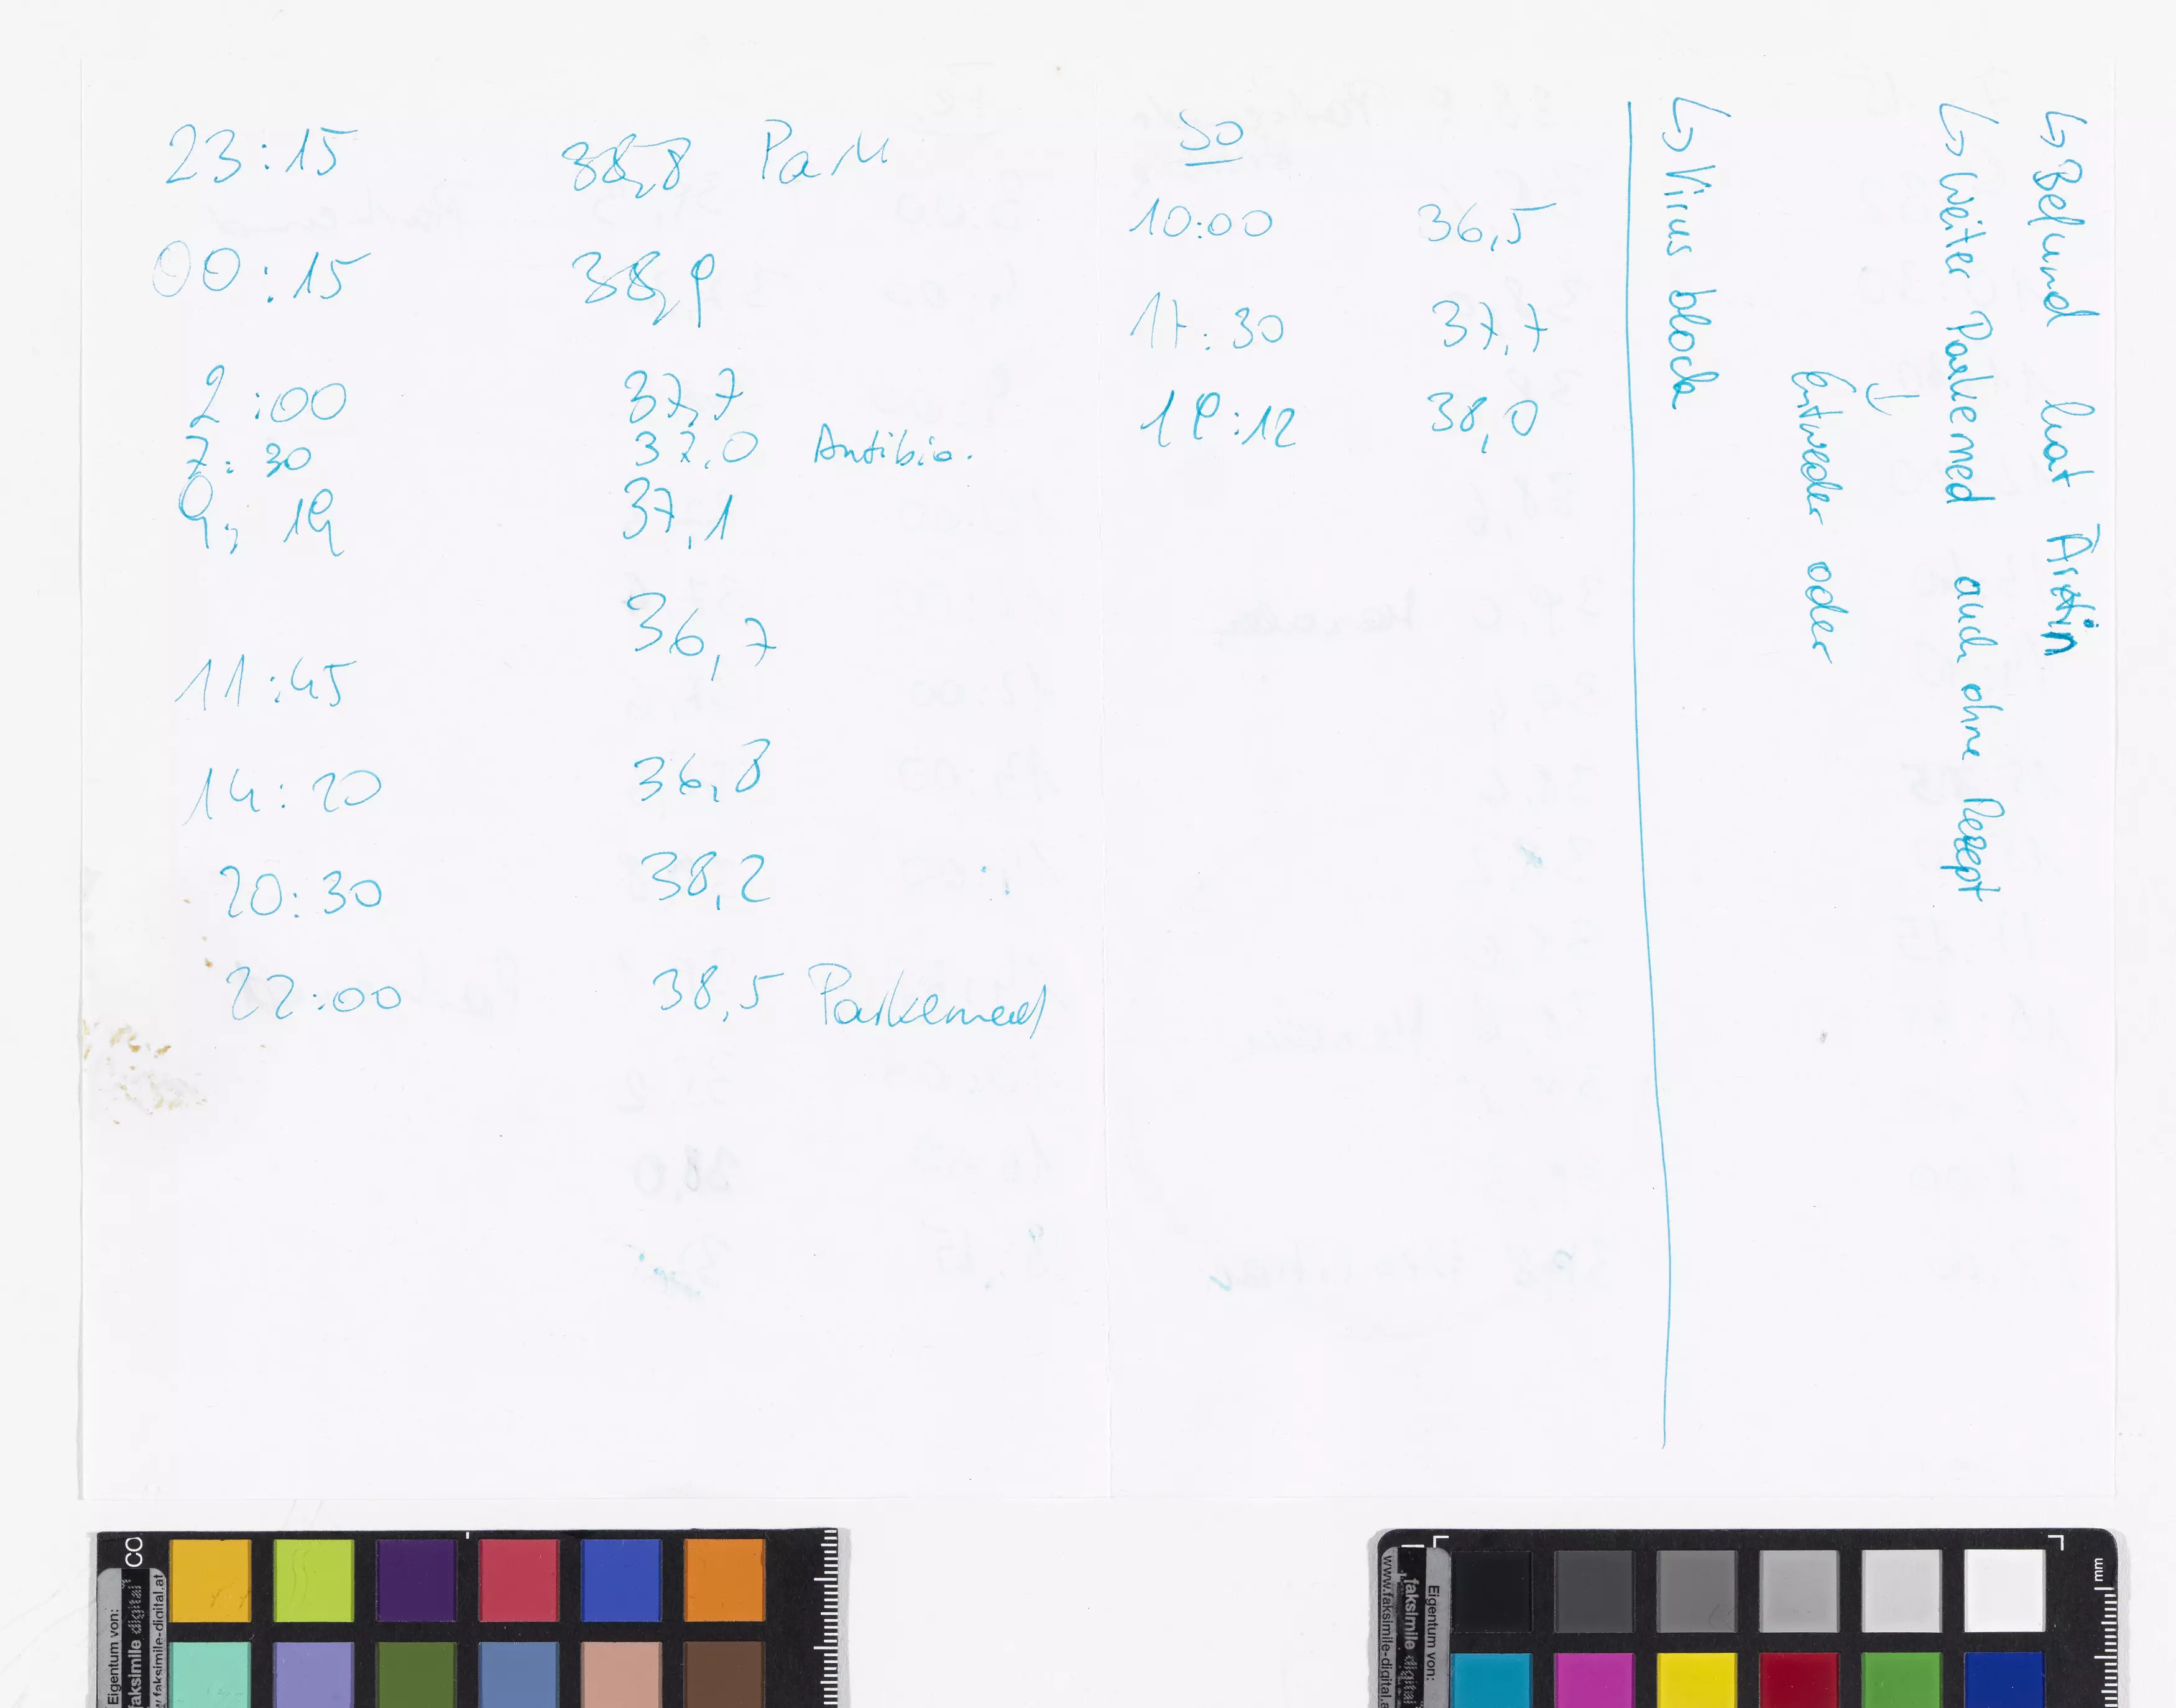 23:15 38,8 Park
00:15 38,9
2:00 37,7
7:30 37,0 Antibio.
9:19 37,1
36,7
11:45
14:20 36,8
20:30 38,2
22:00 38,5 Parkemed
SO
10:00 36,5
17:30 37,7
19:12 38,0
↳ Befund hat Ärztin
↳ Weiter Parkemed auch ohne Rezept
↓
Entweder oder
↳ Virus block
Eigentum von:
faksimile digital
www.faksimile-digital.at
CO
mm
Eigentum von:
faksimile digital
www.faksimile-digital.at